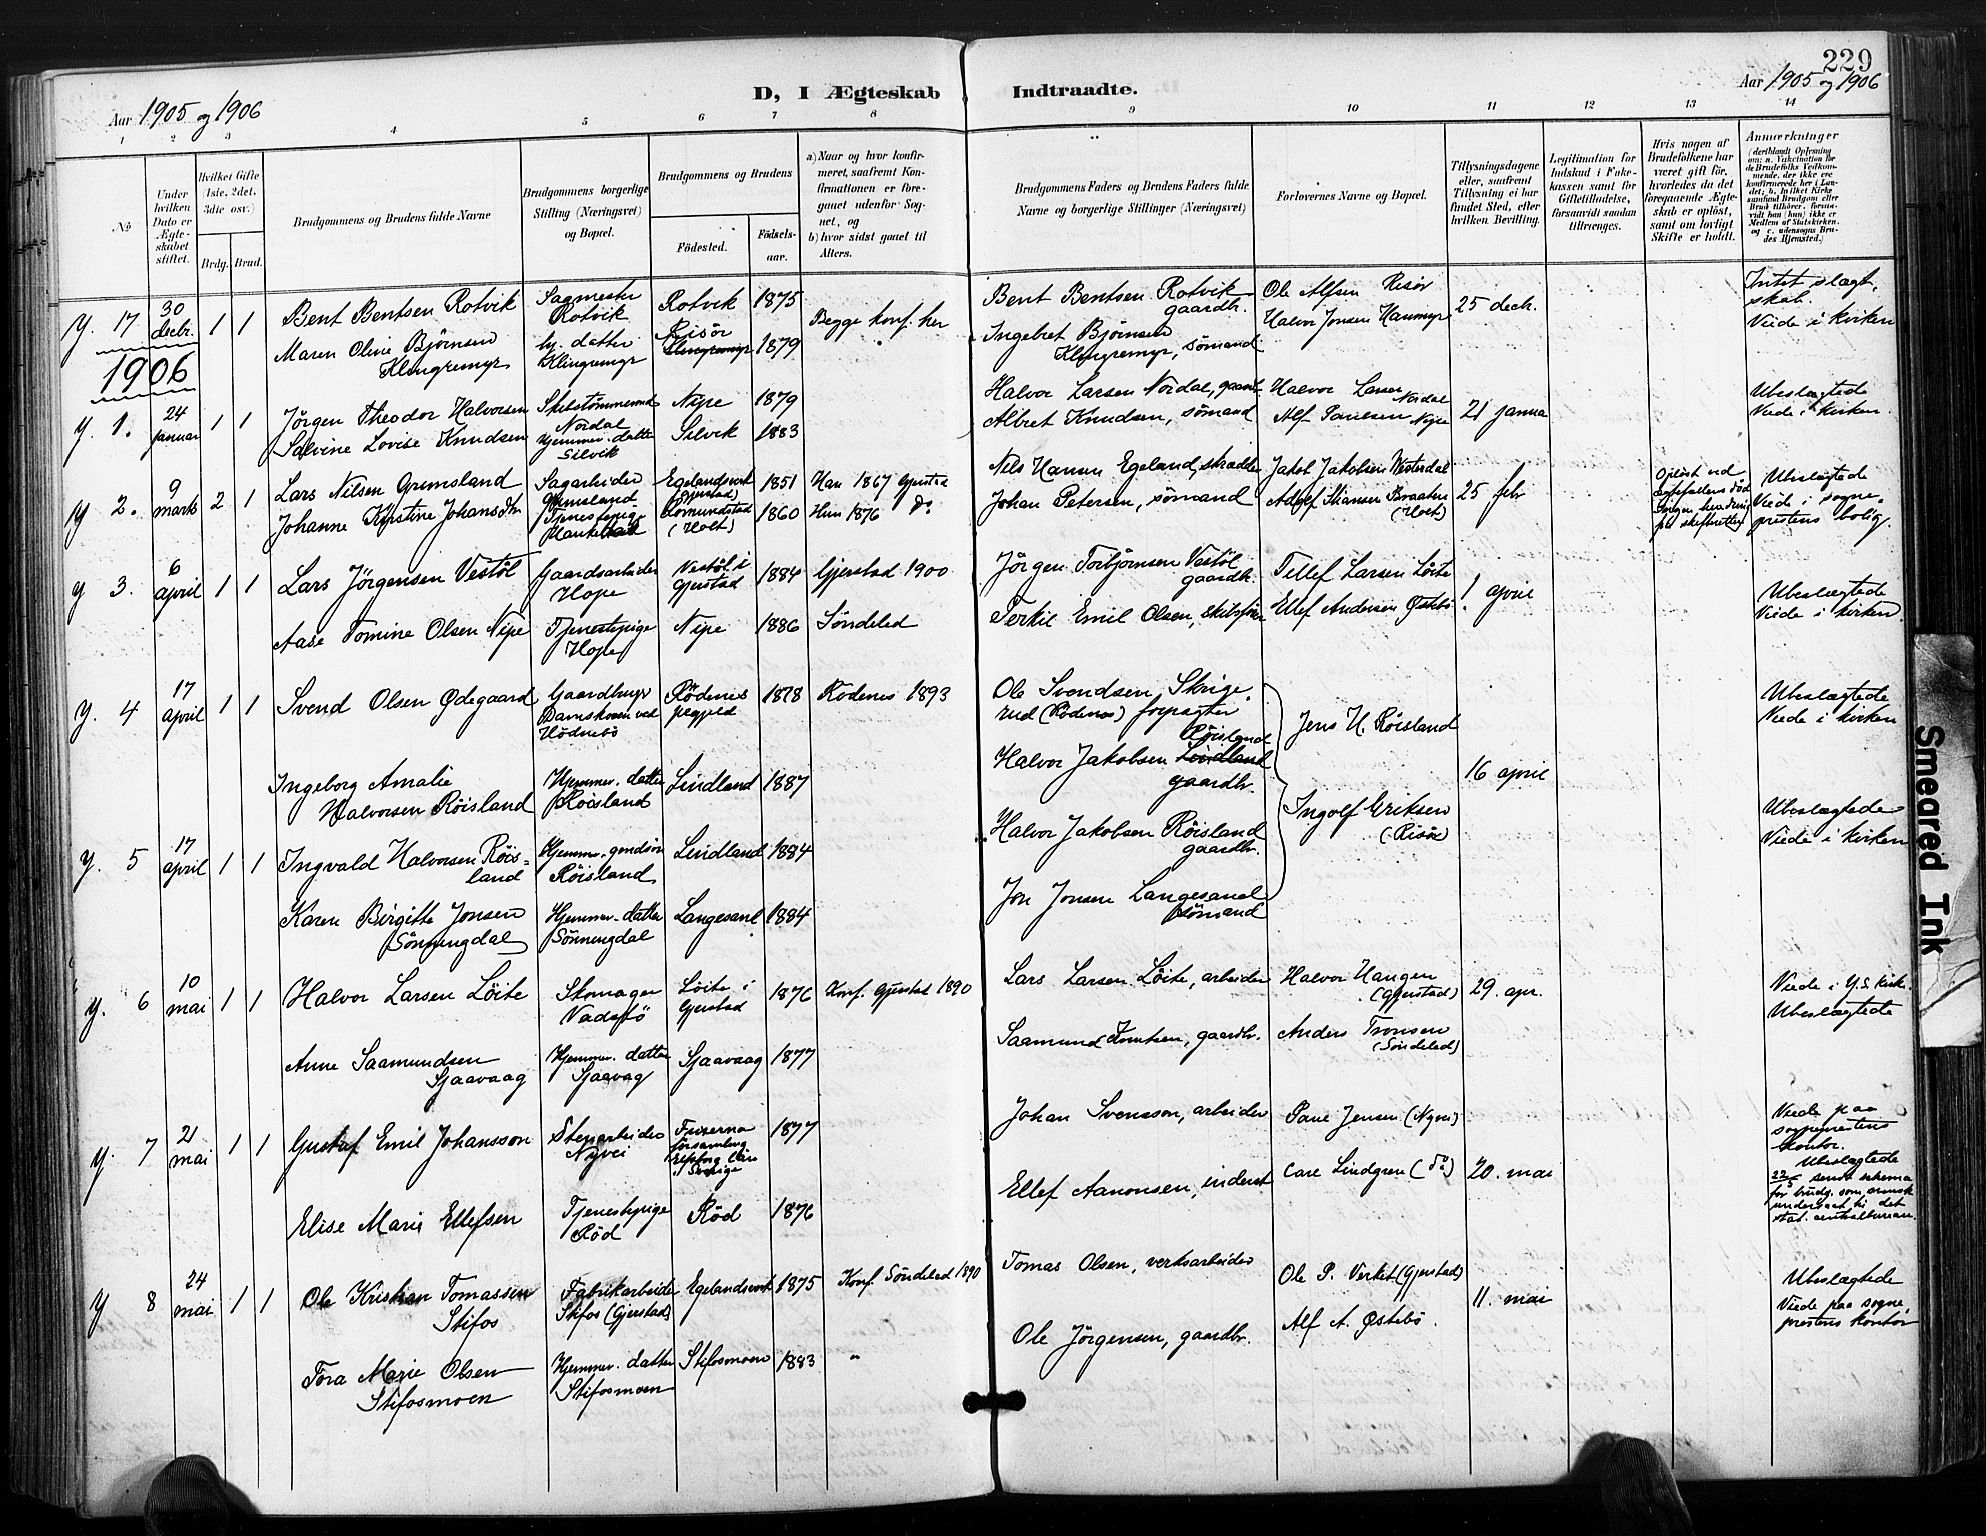 229
Aar 1905 og 1906
D, I Ægteskab Indtraadte.
Aar 1905 og 1906
1 2 3 4 5 6 7 8 9 10 11 12 13 14
№
Under hvilken Dato er Ægteskabet stiftet.
Hvilket Gifte (1ste, 2det, 3die osv.)
Brdg. Brud.
Brudgommens og Brudens fulde Navne
Brudgommens borgerlige Stilling (Næringsvei) og Bopæl.
Brudgommens og Brudens
Fødested.
Fødselsaar.
a) Naar og hvor konfirmeret, saafremt Konfirmationen er foregaaet udenfor Sognet, og
b) hvor sidst gaaet til Alters.
Brudgommens Faders og Brudens Faders fulde Navne og borgerlige Stillinger (Næringsvei)
Forlovernes Navne og Bopæl.
Tillysningsdagene eller, saafremt Tillysning ei har fundet Sted, efter hvilken Bevilling.
Legitimation for Indskud i Enkekassen samt for Giftetilladelse, forsaavidt saadan tiltrænges.
Hvis nogen af Brudefolkene har været gift før, hvorledes da det foregaaende Ægteskab er opløst, samt om lovligt Skifte er holdt.
Anmærkninger
(deriblandt Oplysning om: a. Vaksination for de Brudefolks Vedkommende, der ikke ere konfirmerede her i Landet; b. hvilket Kirkesamfund Brudgom eller Brud tilhører, forsavidt han (hun) ikke er Medlem af Statskirken, og c. udensogns Brudes Hjemsted.)
y. 17 30 decbr. 1 1 Bent Bentsen Rotvik Sagmester Rotvik Rotvik 1875 Begge konf. her Bent Bentsen Rotvik gaardbr. Ole Alfsen Risör 25 dech. Intet slægtskab.
Maren Oline Björnsen Klingremyr hj. datter Klingremyr Risör 1879 Ingebret Björnsen Klingremyr, sömand Halvor Jonsen Viede i kirken
1906
y. 1. 24 januar 1 1 Jörgen Theodor Halvorsen Nordal Nipe 1879 Halvor Larsen Nordal, gaardbr. Halvor Larsen Nordal 21 janua Ubeslægtede
Salvine Lovise Knudsen Hjemmev. datter Silvik Silvik 1883 Albret Knudsen, sömand Alf Paulsen Nipe Viede i kirken.
y 2. 9 marts 2 1 Lars Nilsen Grimsland Sagarbeider Grimsland Egelandsverk (Gjerstad) 1851 Han 1867 Gjerstad Nils Hansen Egeland, skrædder Jakob Jakobsen Westerdal 25 febr Opløst ved ægtefællens död Ubeslægtede
Johanne Kirstine Johansdtr Tjenestepige (Holt) 1860 Hun 1876 Do Johan Petersen, sömand Adolf Braaten (Holt) Viede i sogneprestens bolig.
y 3. 6 april 1 1 Lars Jörgensen Vestöl Gaardsarbeider Hope Vestöl i Gjerstad 1884 Gjerstad 1900 Jörgen Torbjörnsen Vestöl gaardb. Tellef Larsen Löite 1 april Ubeslægtede
Aase Tomine Olsen Nipe Tjenestepige Hope Nipe 1886 Söndeled Terkil Emil Olsen, skibsförer Ellef Andersen Østebö Viede i kirken.
y. 4 17 april 1 1 Svend Olsen Ødegaard Gaardbruger ved Hödnebö Rödenes pgjeld 1878 Rödenes 1893 Ole Svendsen Skrigerud (Rödenes) forpagter Jens H. Röisland 16 april Ubeslægtede Viede i kirken
Ingeborg Amalie Halvorsen Röisland Hjemmev. datter Röisland Lindland 1887 Halvor Jakobsen Röisland gaardbr.
y. 5 17 april 1 1 Ingvald Halvorsen Röisland Hjemmev. gmdsön Röisland Lindland 1884 Halvor Jakobsen Röisland gaardbr. Ingolf Eriksen (Risör) Ubeslægtede Viede i kirken
Karen Birgitte Jonsen Sönningdal Hjemmev. datter Sönningdal Langesand 1884 Jon Jonsen Langesand sömand
y. 6 10 mai 1 1 Halvor Larsen Löite Skomager Vadstö Löite i Gjerstad 1876 Konf. Gjerstad 1890 Lars Larsen Löite, arbeider Halvor Haugen (Gjerstad) 29. apr. Viede i y. S. kirke. Ubeslægtede
Anne Saamundsen Sjaavaag Hjemmev. datter Sjaavag Sjaavaag 1877 Saamund Knutsen, gaardbr. Anders Tronsen (Söndeled)
y. 7 21 mai 1 1 Gustaf Emil Johansson Stenarbeider Nyvei försambling Sverige 1877 Johan Svensson, arbeider Paul Jensen (Nyvei) 20. mai Viede paa sogneprestens kontor. Ubeslægtede
Elise Marie Ellefsen Tjenestepige Röd Röd 1876 Ellef Aanonsen, inderst Carl Lindgren (do) 22/5 sendt skema for brudg. som svensk undersaat til det stat. centralbureau.
y 8 24 mai 1 1 Ole Kristian Tomassen Stifos Fabrikarbeider Stifos (Gjerstad) Egelandsverk 1875 Konf. Söndeled 1890 Tomas Olsen, verksarbeider Ole P. Verket (Gjerstad) 11. mai Ubeslægtede Viede paa sogneprestens kontor
Tora Marie Olsen Stifosmoen Hjemmev. datter Stifosmoen Stifosmoen 1883 " Ole Jörgensen, gaardbr. Alf A. Østebö.
Smeared Ink